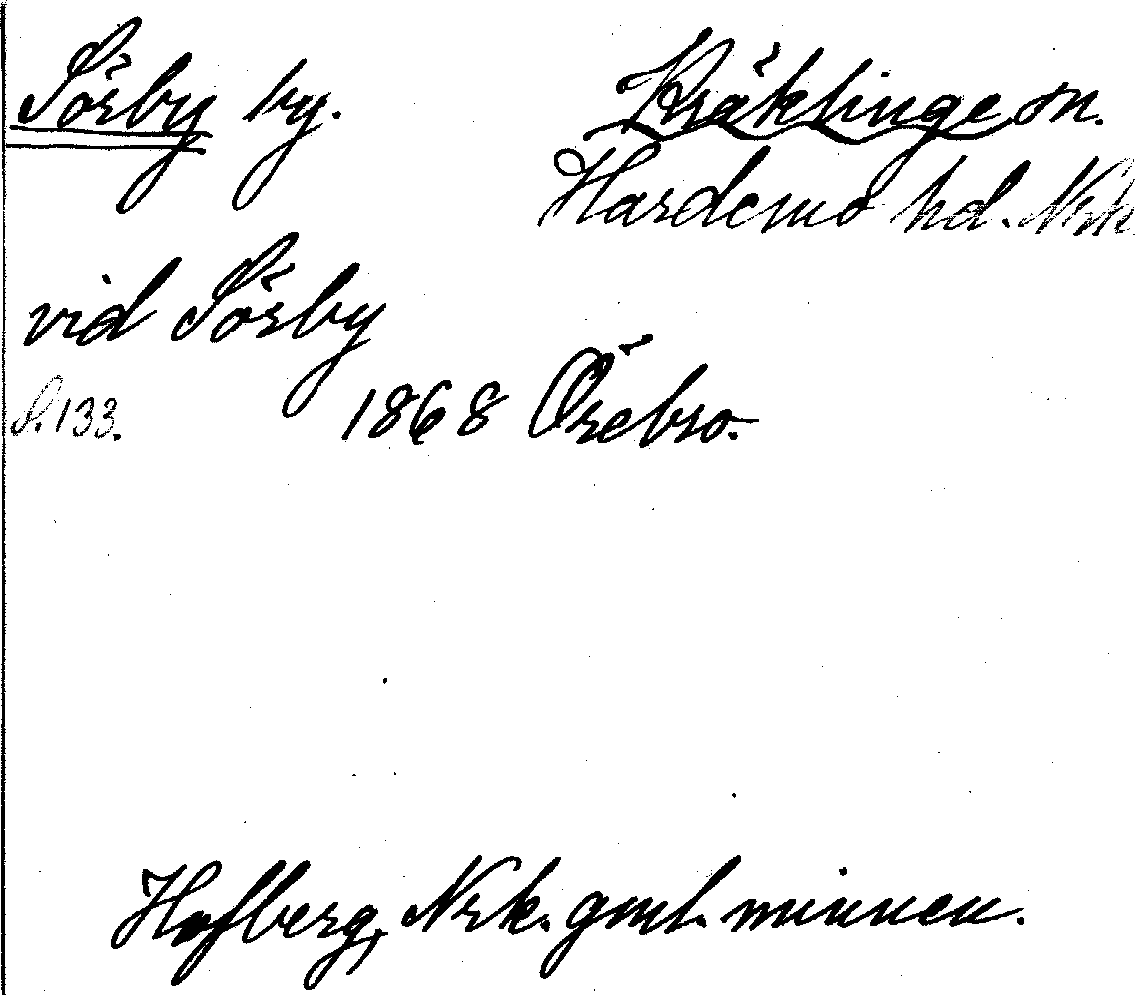 Sörby by. Kräklinge sn.
Hardemo hd. Nrk.
vid Sörby
S. 133. 1868 Örebro.
Hofberg, Nrk. gml. minnen.